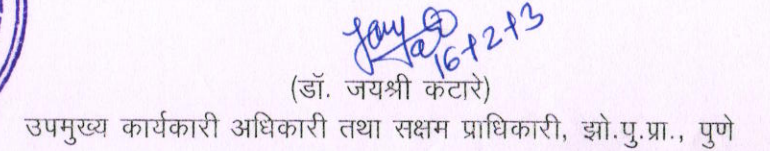 16+2+3
(डॉ. जयश्री कटारे)
उपमुख्य कार्यकारी अधिकारी तथा सक्षम प्राधिकारी, झो.पु.प्रा., पुणे